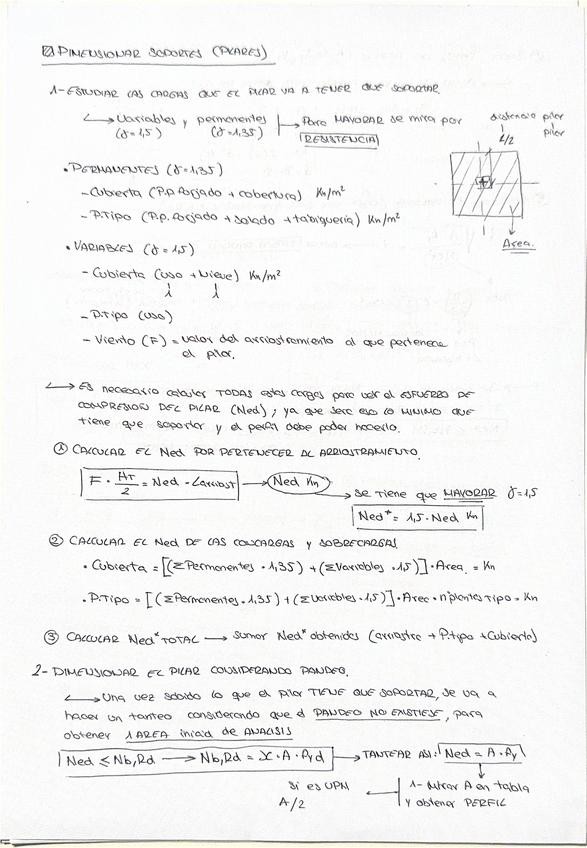 DIMENSIONAR SOPORTES (PILARES)
1- ESTUDIAR LAS CARGAS QUE EL PILAR VA A TENER QUE SOPORTAR.
↳ Variables y permanentes → Para MAYORAR se mira por
(γ=1,5) (γ=1,35) RESISTENCIA
distancia pilar
pilar
L/2
Area.
• PERMANENTES (γ=1,35)
- Cubierta (P.p. Forjado + cobertura) Kn/m²
- P.Tipo (P.p. Forjado + solado + tabiquería) Kn/m²
• VARIABLES (γ=1,5)
- Cubierta (uso + nieve) Kn/m²
- P.Tipo (uso)
- Viento (F) = valor del arriostramiento al que pertenece
el pilar.
↳ ES necesario calcular TODAS estas cargas para ver el ESFUERZO DE
COMPRESION DEL PILAR (Ned); ya que sera eso lo MINIMO QUE
tiene que soportar y el perfil debe poder hacerlo.
① CALCULAR EL Ned POR PERTENECER AL ARRIOSTRAMIENTO.
F · HT/2 = Ned · Larriost → Ned Kn
→ Se tiene que MAYORAR γ=1,5
Ned* = 1,5 · Ned Kn
② CALCULAR EL Ned DE LAS CONCARGAS y SOBRECARGAS.
• Cubierta = [(ΣPermanentes · 1,35) + (ΣVariables · 1,5)] · Area = Kn
• P.Tipo = [(ΣPermanentes · 1,35) + (ΣVariables · 1,5)] · Area · nºplantas Tipo = Kn
③ CALCULAR Ned* TOTAL → sumar Ned* obtenidos (arriostra + P.tipo + Cubierta)
2- DIMENSIONAR EL PILAR CONSIDERANDO PANDEO.
↳ Una vez sabido lo que el pilar TIENE QUE SOPORTAR, se va a
hacer un tanteo considerando que el PANDEO NO EXISTIESE, para
obtener 1 AREA inicial de ANALISIS
Ned ≤ Nb,Rd → Nb,Rd = X · A · Ayd → TANTEAR ASI: Ned = A · Ay
Si es UPN ← 1- Mirar A en tabla
A/2 y obtener PERFIL